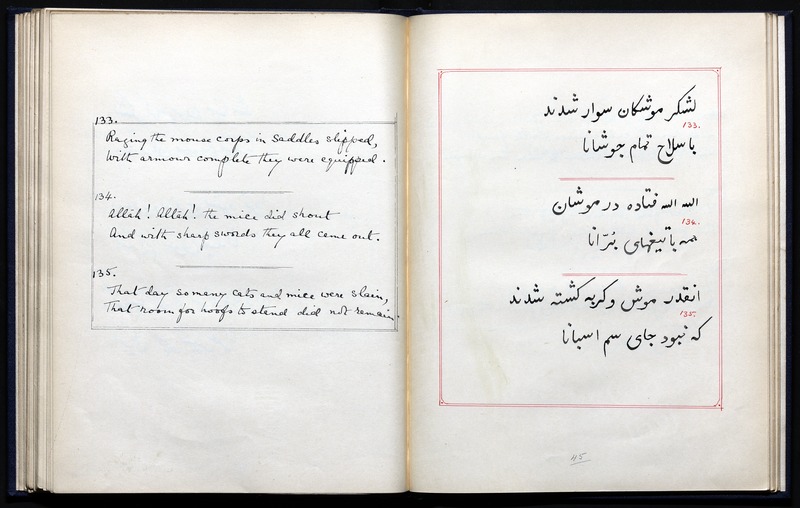 133.
Raging the mouse corps in saddles slipped,
With armour complete they were equipped.
134.
Allah! Allah! the mice did shout
And with sharp swords they all came out.
135.
That day so many cats and mice were slain,
That room for hoofs to stand did not remain.
لشکر موشکان سوار شدند
133.
با سلاح تمام جوشانا
الله الله فتاده در موشان
134.
همه با تیغهای بُرّانا
انقدر موش و کربه کشته شدند
135.
که نبود جای سم اسبانا
45